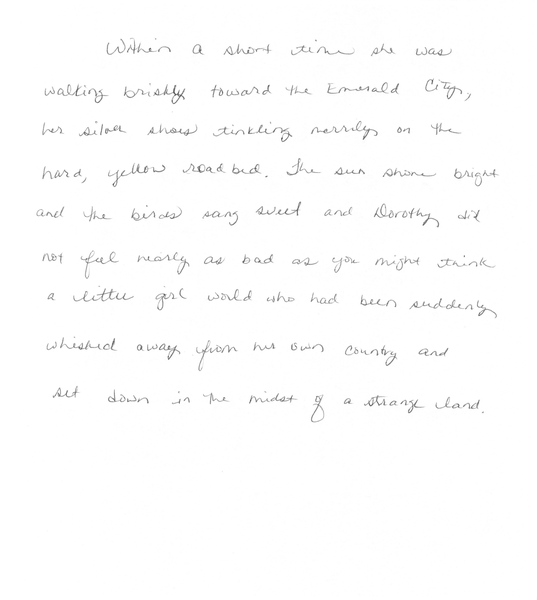 Within a short time she was
walking briskly toward the Emerald City,
her silver shoes tinkling merrily on the
hard, yellow roadbed. The sun shone bright
and the birds sang sweet and Dorothy did
not feel nearly as bad as you might think
a little girl world who had been suddenly
whisked away from her own country and
set down in the midst of a strange land.